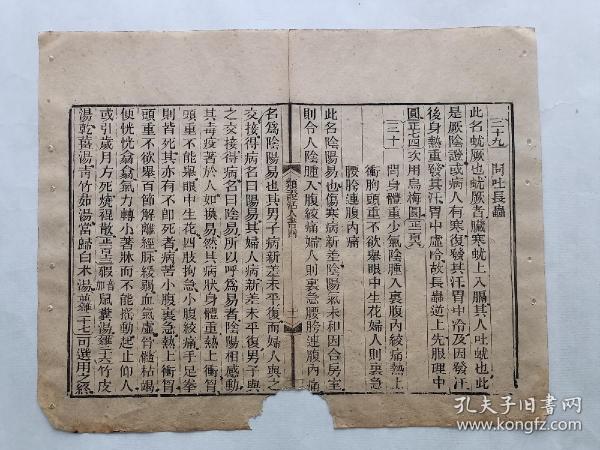 三十九　問吐長蟲
此名蚘厥也蚘厥者臟寒蚘上入膈其人吐蚘也此
是厥陰證或病人有寒復發其汗胃中冷及因發汗
後身熱重發其汗胃中虛冷故長蟲逆上先服理中
圓正七四次用烏梅圓
問身體重少氣陰腫入裏腹內絞痛熱上
衝胸頭重不欲舉眼中生花婦人則裏急
腰胯連腹內痛
此名陰陽易也傷寒病新差陰陽氣未和因合房室
則令人陰腫入腹絞痛婦人則裏急腰胯連腹內痛
類證活人書
名爲陰陽易也其男子病新差未平復而婦人與之
交接得病名曰陽易其婦人病新差未平復男子與
之交接得病名曰陰易所以呼爲易者陰陽相感動
其毒疫著於人如換易然其病狀身體重熱上衝胸
頭重不能舉眼中生花四肢拘急小腹絞痛手足拳
則皆死其亦有不卽死者病苦小腹裏急熱上衝胸
頭重不欲舉百節解離經脉緩弱血氣虛骨髓枯竭
便恍恍翕翕氣力轉小著牀而不能搖動起止仰人
或引歲月方死燒裩散 鼠糞湯 竹皮
湯乾薑湯青竹茹湯當歸白术湯 可選用之
孔夫子旧書网
www.kongfz.com